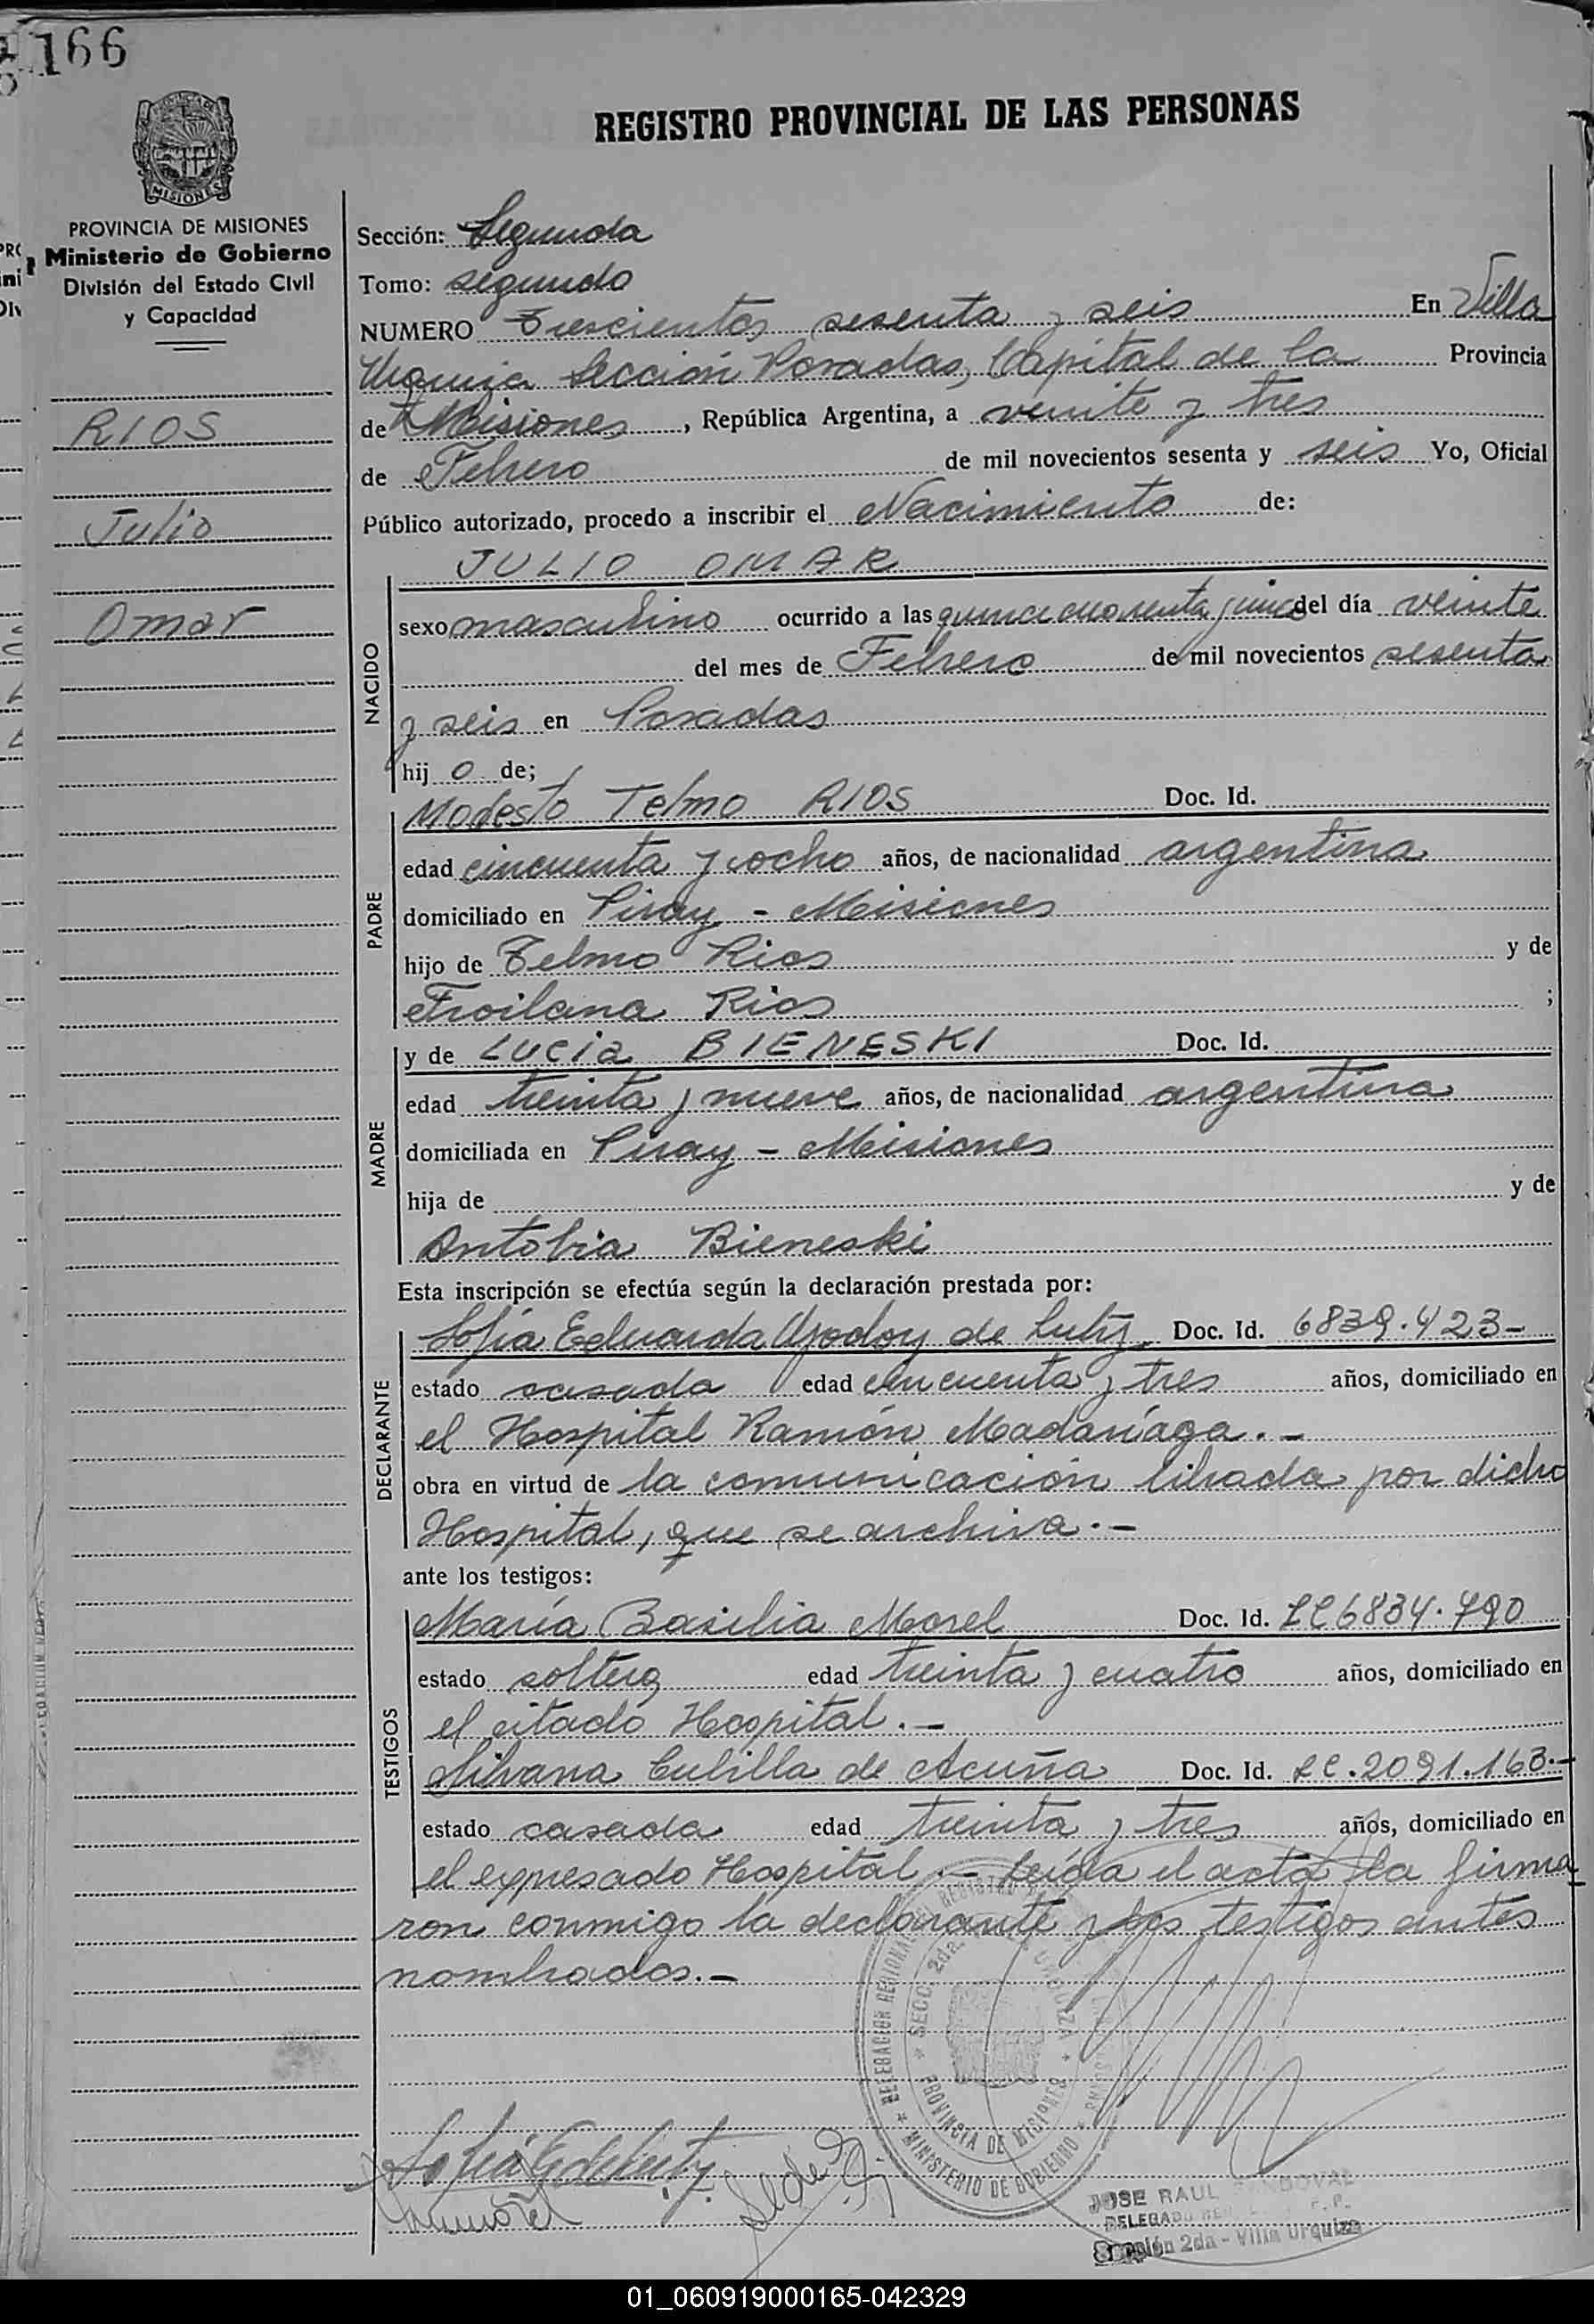 166
REGISTRO PROVINCIAL DE LAS PERSONAS
MISIONES
PROVINCIA DE MISIONES
Ministerio de Gobierno
División del Estado Civil
y Capacidad
RIOS
Julio
Omar
Sección: Segunda
Tomo: segundo
NUMERO Trescientos sesenta y seis En Villa
Urquiza Sección Posadas, Capital de la Provincia
de Misiones, República Argentina, a veinte y tres
de Febrero de mil novecientos sesenta y seis Yo, Oficial
Público autorizado, procedo a inscribir el Nacimiento de:
JULIO OMAR
NACIDO
sexo masculino ocurrido a las quince cuarenta y cinco del día veinte
del mes de Febrero de mil novecientos sesenta
y seis en Posadas
hij o de;
PADRE
Modesto Telmo RIOS Doc. Id.
edad cincuenta y ocho años, de nacionalidad argentina
domiciliado en Piray - Misiones
hijo de Telmo Rios y de
Froilana Rios ;
MADRE
y de Lucia BIENESKI Doc. Id.
edad treinta y nueve años, de nacionalidad argentina
domiciliada en Piray - Misiones
hija de y de
Bieneski
Esta inscripción se efectúa según la declaración prestada por:
DECLARANTE
Sofía Eduarda Godoy de Doc. Id. 6839.423-
estado casada edad cincuenta y tres años, domiciliado en
el Hospital Ramón Madariaga.-
obra en virtud de la comunicación librada por dicho
Hospital, que se archiva.-
ante los testigos:
TESTIGOS
María Basilia Morel Doc. Id. LC6834.790
estado soltera edad treinta y cuatro años, domiciliado en
el citado Hospital.-
Silvana Cubilla de Acuña Doc. Id. LC.2091.163.-
estado casada edad treinta y tres años, domiciliado en
el expresado Hospital.- Leída el acta, la firma
ron conmigo la declarante y los testigos antes
nombrados.-
SECC. 2da.
PROVINCIA DE MISIONES
MINISTERIO DE GOBIERNO
JOSE RAUL SANDOVAL
Sección 2da - Villa Urquiza
01_060919000165-042329